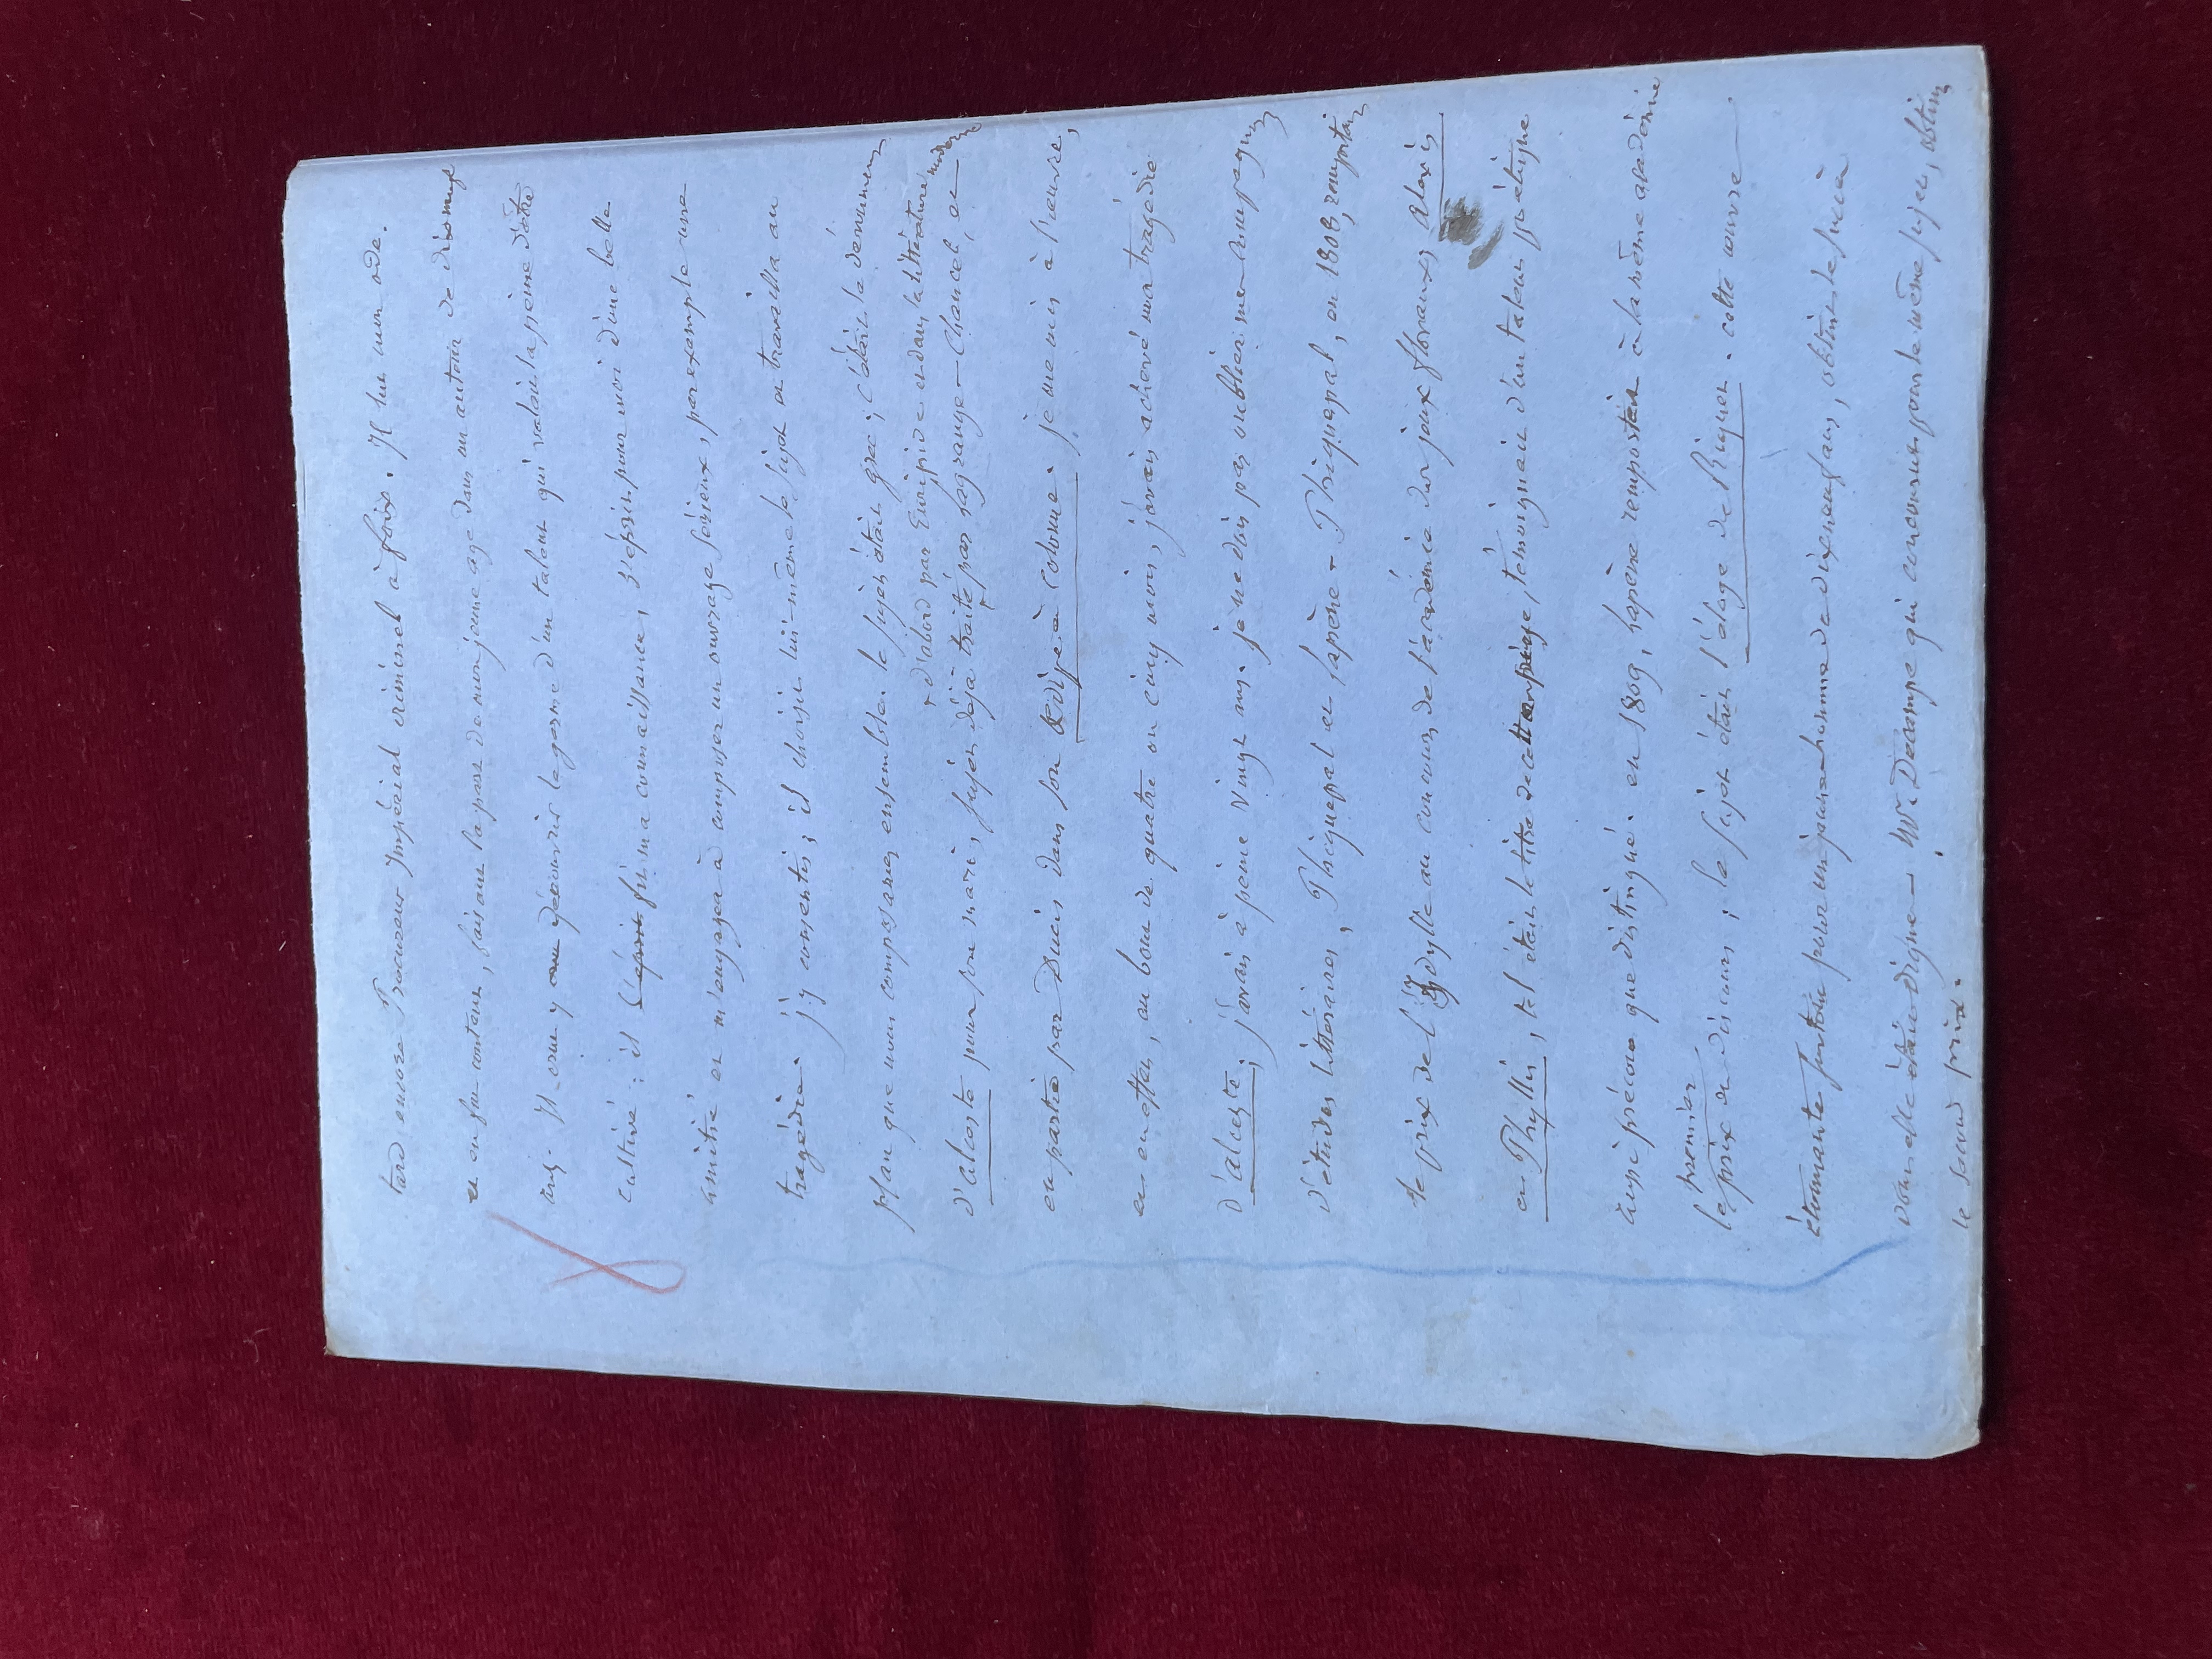 tard encore Procureur Impérial criminel à foix. Il lut mon ode.
et en fut content, faisant la part de mon jeune age dans un auteur de dix neuf
ans. Il crut y découvrir le germe d'un talent qui valait la peine d'être
cultivé : il fit ma connaissance, s'éprit pour moi d'une belle
amitié et m'engagea à composer un ouvrage sérieux, par exemple une
tragédie. j'y consentis ; il choisit lui-même le sujet et travailla au
plan que nous composames ensemble. le sujet était grec ; c'était le dévouement
d'alceste pour son mari, sujet déjà traité
d'abord par Euripide et dans la littérature moderne
par Lagrange-Chancel, et
en partie par Ducis dans son Œdipe à Colonne. je me mis à l'œuvre,
et en effet, au bout de quatre ou cinq mois, j'avais achevé ma tragédie
d'alceste ; j'avais à peine vingt ans. je ne dois pas oublier mes compagnons
d'études littéraires, Phiquepal et Lapène. Phiquepal, en 1808, remporta
le prix de l'Idylle au concours de l'académie des jeux floraux ; Alexis
et Phyllis, tel était le titre de cette pièce, témoignait d'un talent poétique
aussi précoce que distingué. en 1809, Lapène remporta à la même académie
le premier prix de discours ; le sujet était l'éloge de Riquet. cette œuvre
étonnante surtout pour un jeune homme de dix neuf ans, obtint le succès
dont elle était digne. Mr. Decampe qui concourut pour le même sujet, obtint
le second prix.